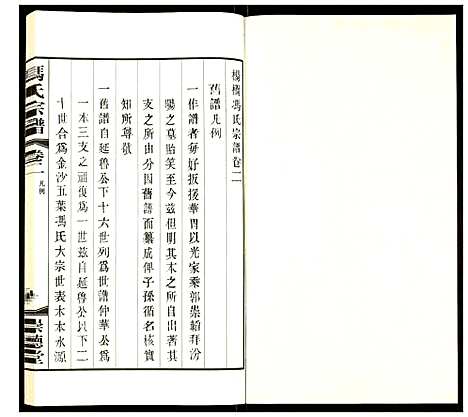 楊橋馮氏宗譜卷二
舊譜凡例
一作譜者每好扳援華冑以光家乘郭崇韜拜汾
陽之墓貽笑至今兹但明其本之所自出著其
支之所由分因舊譜而纂成俾子孫循名核實
知所尊敬
一舊譜自延魯公下十六世列爲世譜仲華公爲
一本三支之祖復爲一世兹自延魯公以下二
十世合爲金沙五葉馮氏大宗世表水木永源
馮氏宗譜
卷二
凡例
崇德堂